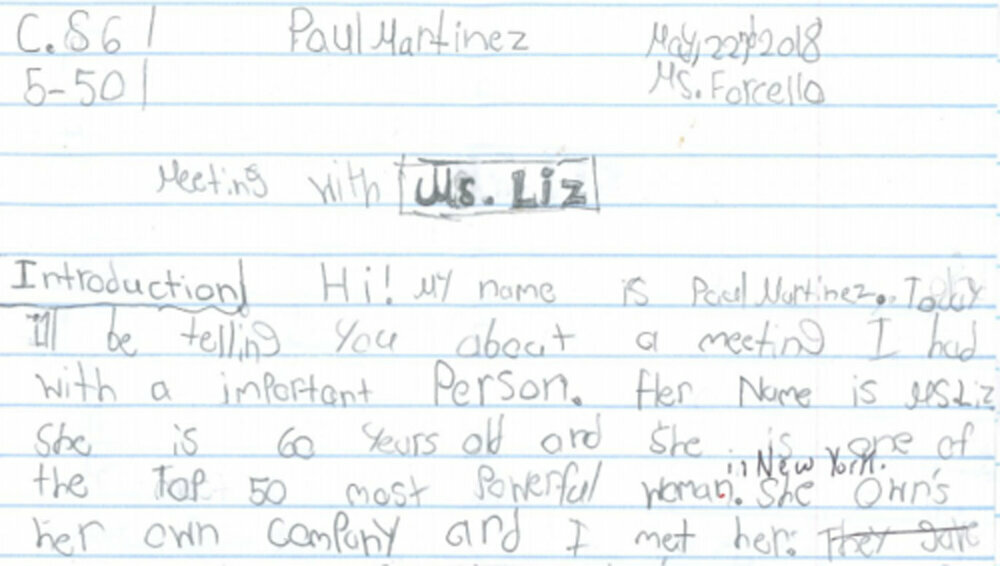 C.S 61 Paul Martinez May, 22nd 2018
5-501 Ms. Forcello
Meeting with Ms. Liz
Introduction Hi! My name is Paul Martinez. Today
I'll be telling you about a meeting I had
with a important Person. Her Name is Ms Liz
She is 60 Years old and she is one of
the Top 50 most Powerful woman in New York. She Own's
her own company and I met her. They gave